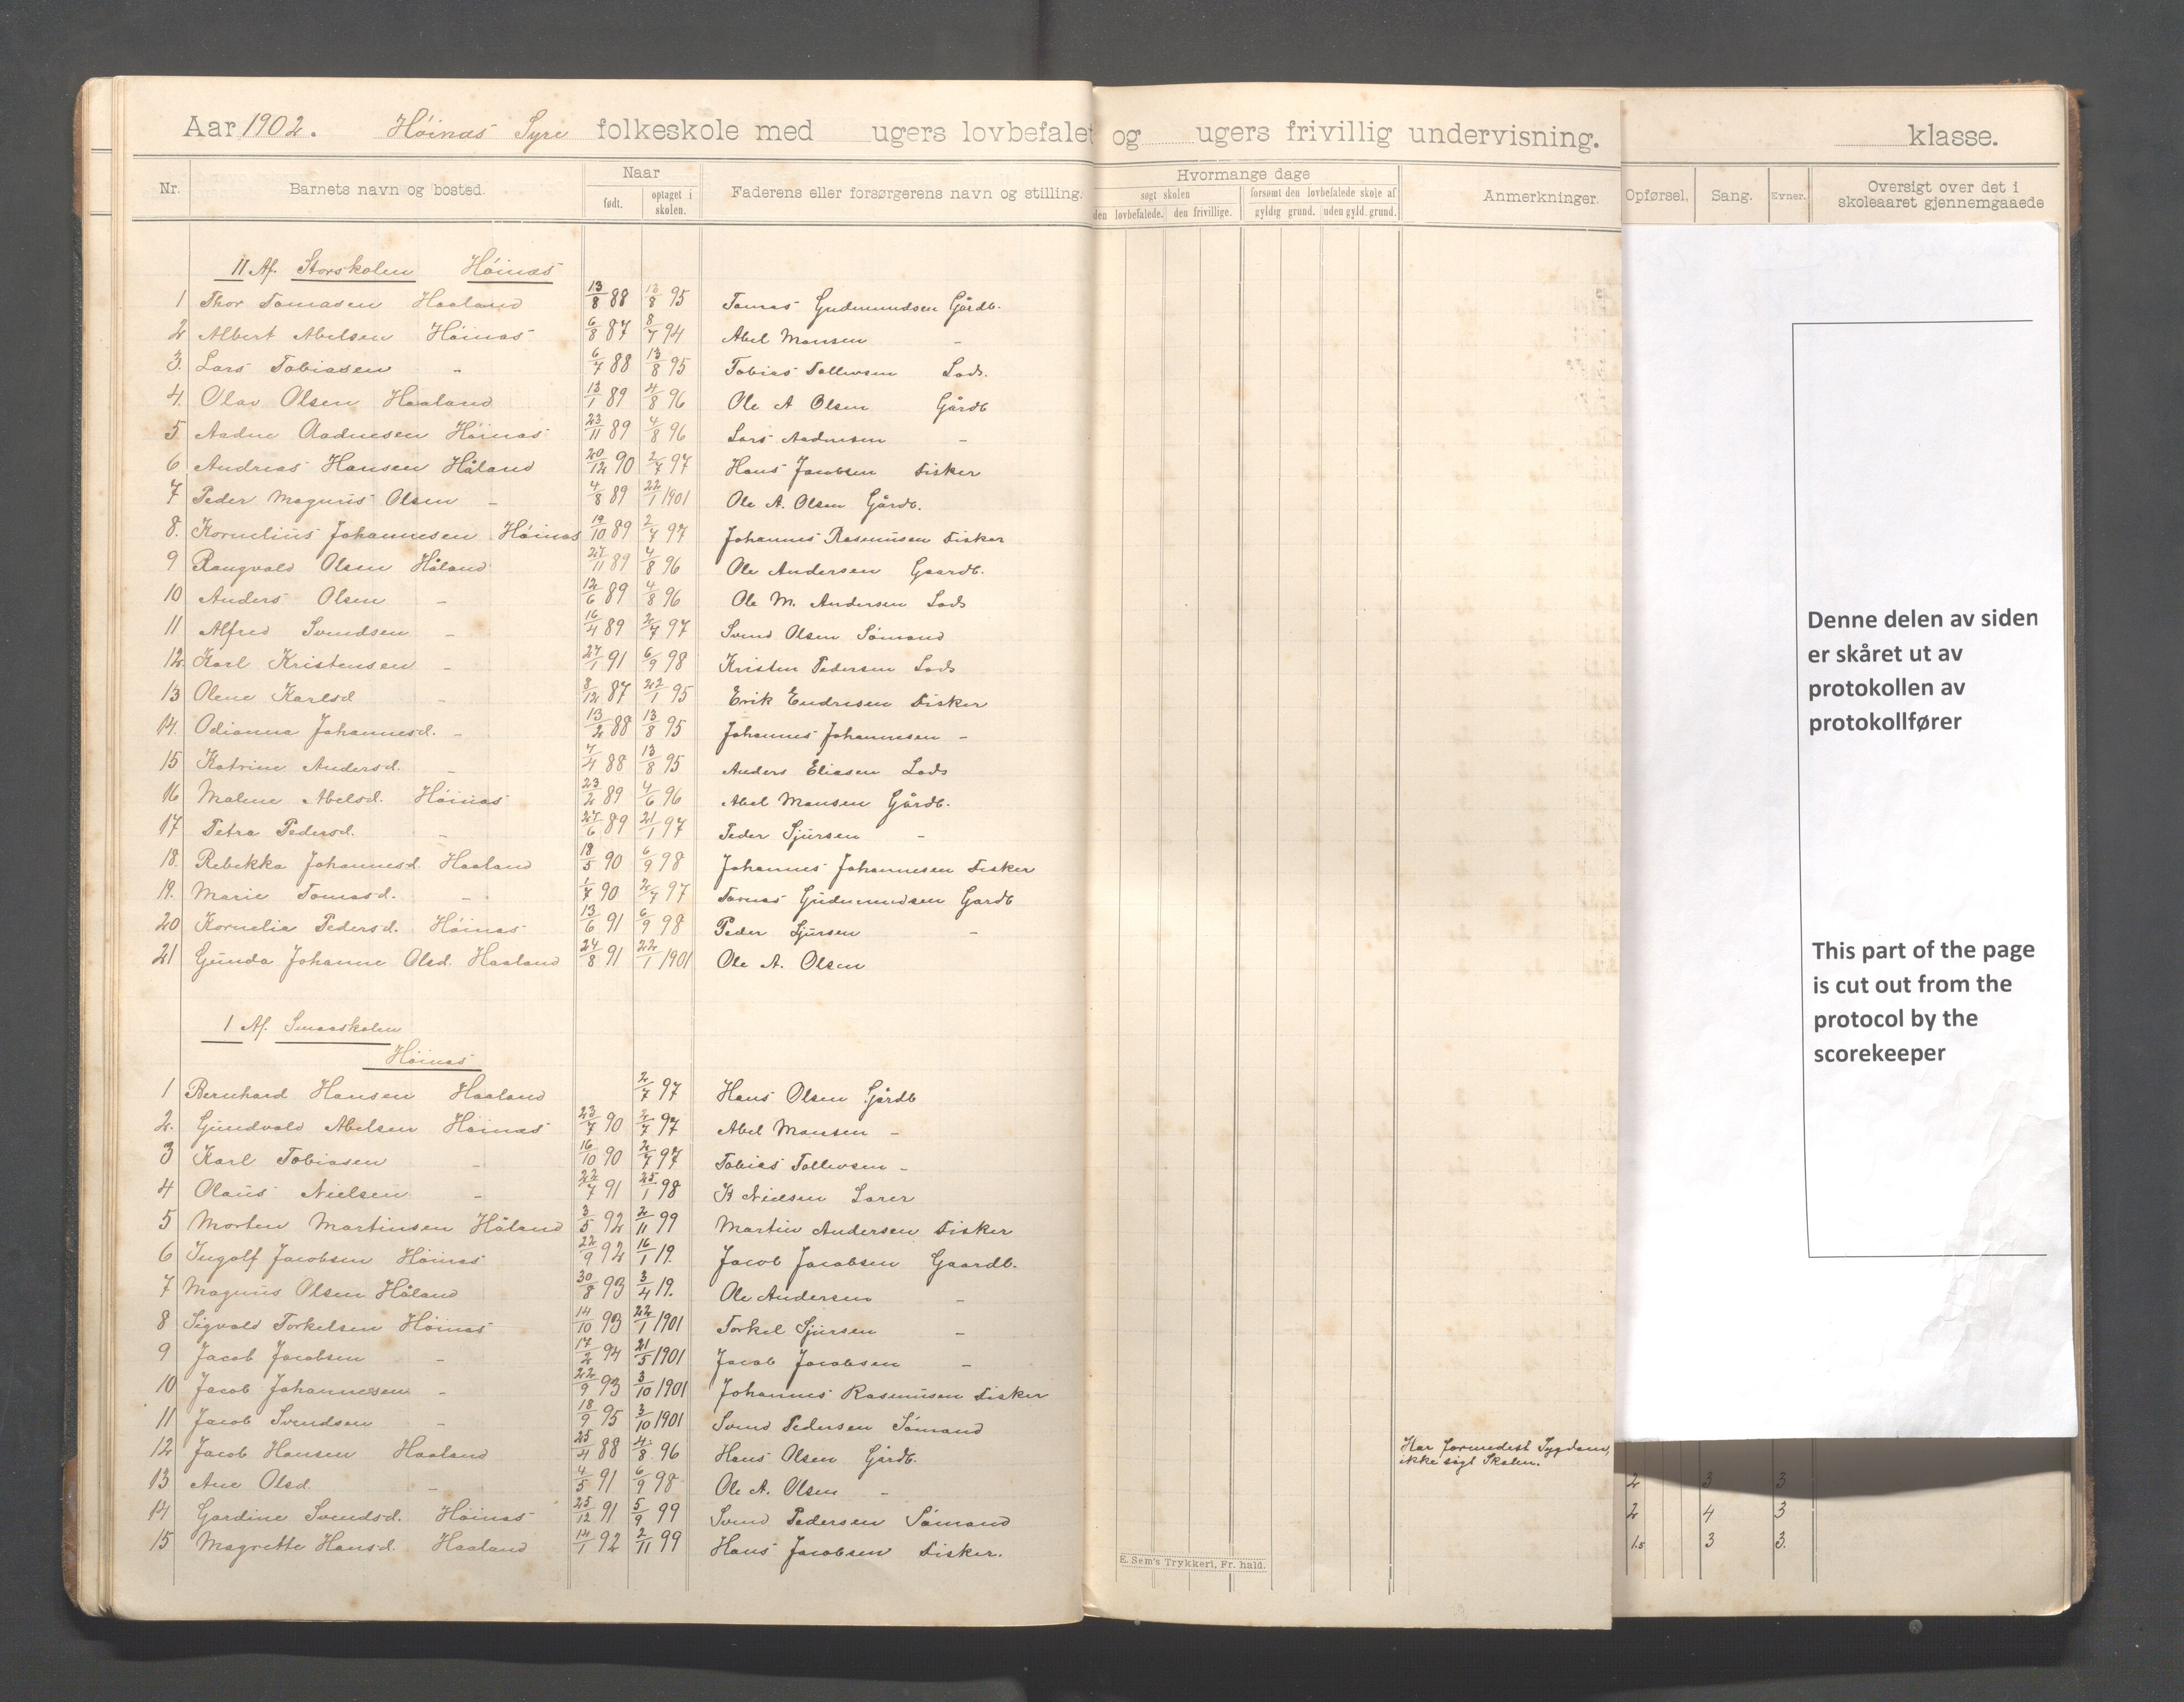 Aar 1902. Höinæs Syre folkeskole med ugers lovbefalet og ugers frivillig undervisning. klasse.
Nr. Barnets navn og bosted. Naar født. optaget i skolen. Faderens eller forsørgerens navn og stilling. Hvormange dage søgt skolen den lovbefalede. den frivillige. forsømt den lovbefalede skole af gyldig grund. uden gyld. grund. Anmerkninger. Opførsel. Sang. Evner. Oversigt over det i skoleaaret gjennemgaaede
II Af. Storskolen Höinæs
1 Thor Tomasen Haaland 13/8 88 13/8 95 Tomas Gudmundsen Gårdb.
2 Albert Abelsen Höinæs 6/8 87 8/7 94 Abel Monsen -
3. Lars Tobiasen - 6/7 88 13/8 95 Tobias Tollevsen Lods.
4. Olav Olsen Haaland 13/1 89 4/8 96 Ole A Olsen Gårdb
5 Aadne Aadnesen Höinæs 23/11 89 4/8 96 Lars Aadnesen -
6 Andreas Hansen Håland 20/12 90 2/7 97 Hans Jacobsen Fisker
7 Peder Magnus Olsen - 4/8 89 22/1 1901 Ole A. Olsen Gårdb.
8. Kornelius Johannesen Höinæs 19/10 89 2/7 97 Johannes Rasmusen Fisker
9 Rangvald Olsen Håland 27/11 89 4/8 96 Ole Andersen Gaardb.
10 Anders Olsen - 12/6 89 4/8 96 Ole M. Andersen Lods
11 Alfred Svendsen - 16/4 89 2/7 97 Svend Olsen Sömand
12. Karl Kristensen - 27/1 91 6/9 98 Kristen Pedersen Lods
13 Olene Karlsd - 8/12 87 22/1 95 Erik Endresen Fisker
14. Odianna Johannesd. - 13/2 88 13/8 95 Johannes Johannesen -
15 Katrine Andersd. - 7/4 88 13/8 95 Anders Eliasen Lods
16 Malene Abelsd. Höinæs 23/2 89 4/6 96 Abel Monsen Gårdb.
17 Petra Pedersd. - 27/6 89 21/1 97 Peder Sjursen -
18. Rebekka Johannesd. Haaland 18/5 90 6/9 98 Johannes Johannesen Fisker
19. Marie Tomasd. - 1/7 90 2/7 97 Tomas Gudmundsen Gardb
20 Kornelia Pedersd. Höinæs 13/6 91 6/9 98 Peder Sjursen -
21 Gunda Johanne Olsd. Haaland 24/8 91 22/1 1901 Ole A. Olsen
I Af. Smaaskolen
Höinæs
1 Bernhard Hansen Haaland 2/7 97 Hans Olsen Gårdb
2. Gundvald Abelsen Höinæs 23/7 90 2/7 97 Abel Monsen -
3 Karl Tobiasen - 16/10 90 2/7 97 Tobias Tollevsen -
4 Olaus Nielsen - 22/7 91 25/1 98 K Nielsen Lærer
5 Morten Martinsen Håland 3/5 92 2/11 99 Martin Andersen Fisker
6 Ingolf Jacobsen Höinæs 22/9 92 16/1 19. Jacob Jacobsen Gaardb.
7 Magnus Olsen Håland 30/8 93 3/4 19. Ole Andersen -
8 Sigvald Torkelsen Höinæs 14/10 93 22/1 1901 Torkel Sjursen -
9 Jacob Jacobsen - 17/2 94 21/5 1901 Jacob Jacobsen -
10 Jacob Johannesen - 22/9 93 3/10 1901 Johannes Rasmusen Fisker
11 Jacob Svendsen - 18/9 95 3/10 1901 Svend Pedersen Sömand
12 Jacob Hansen Haaland 25/4 88 4/8 96 Hans Olsen Gårdb. Har formedelst Sygdom, ikke sögt Skolen.
13 Ane Olsd. - 4/5 91 6/9 98 Ole A. Olsen - 2 3 3
14 Gardine Svendsd. Höinæs 25/12 91 5/9 99 Svend Pedersen Sömand 2 4 3
15 Magrette Hansd. Haaland 14/1 92 2/11 99 Hans Jacobsen Fisker. 1.5 3 3.
E. Sem's Trykkeri, Fr. hald.
Denne delen av siden
er skåret ut av
protokollen av
protokollfører
This part of the page
is cut out from the
protocol by the
scorekeeper